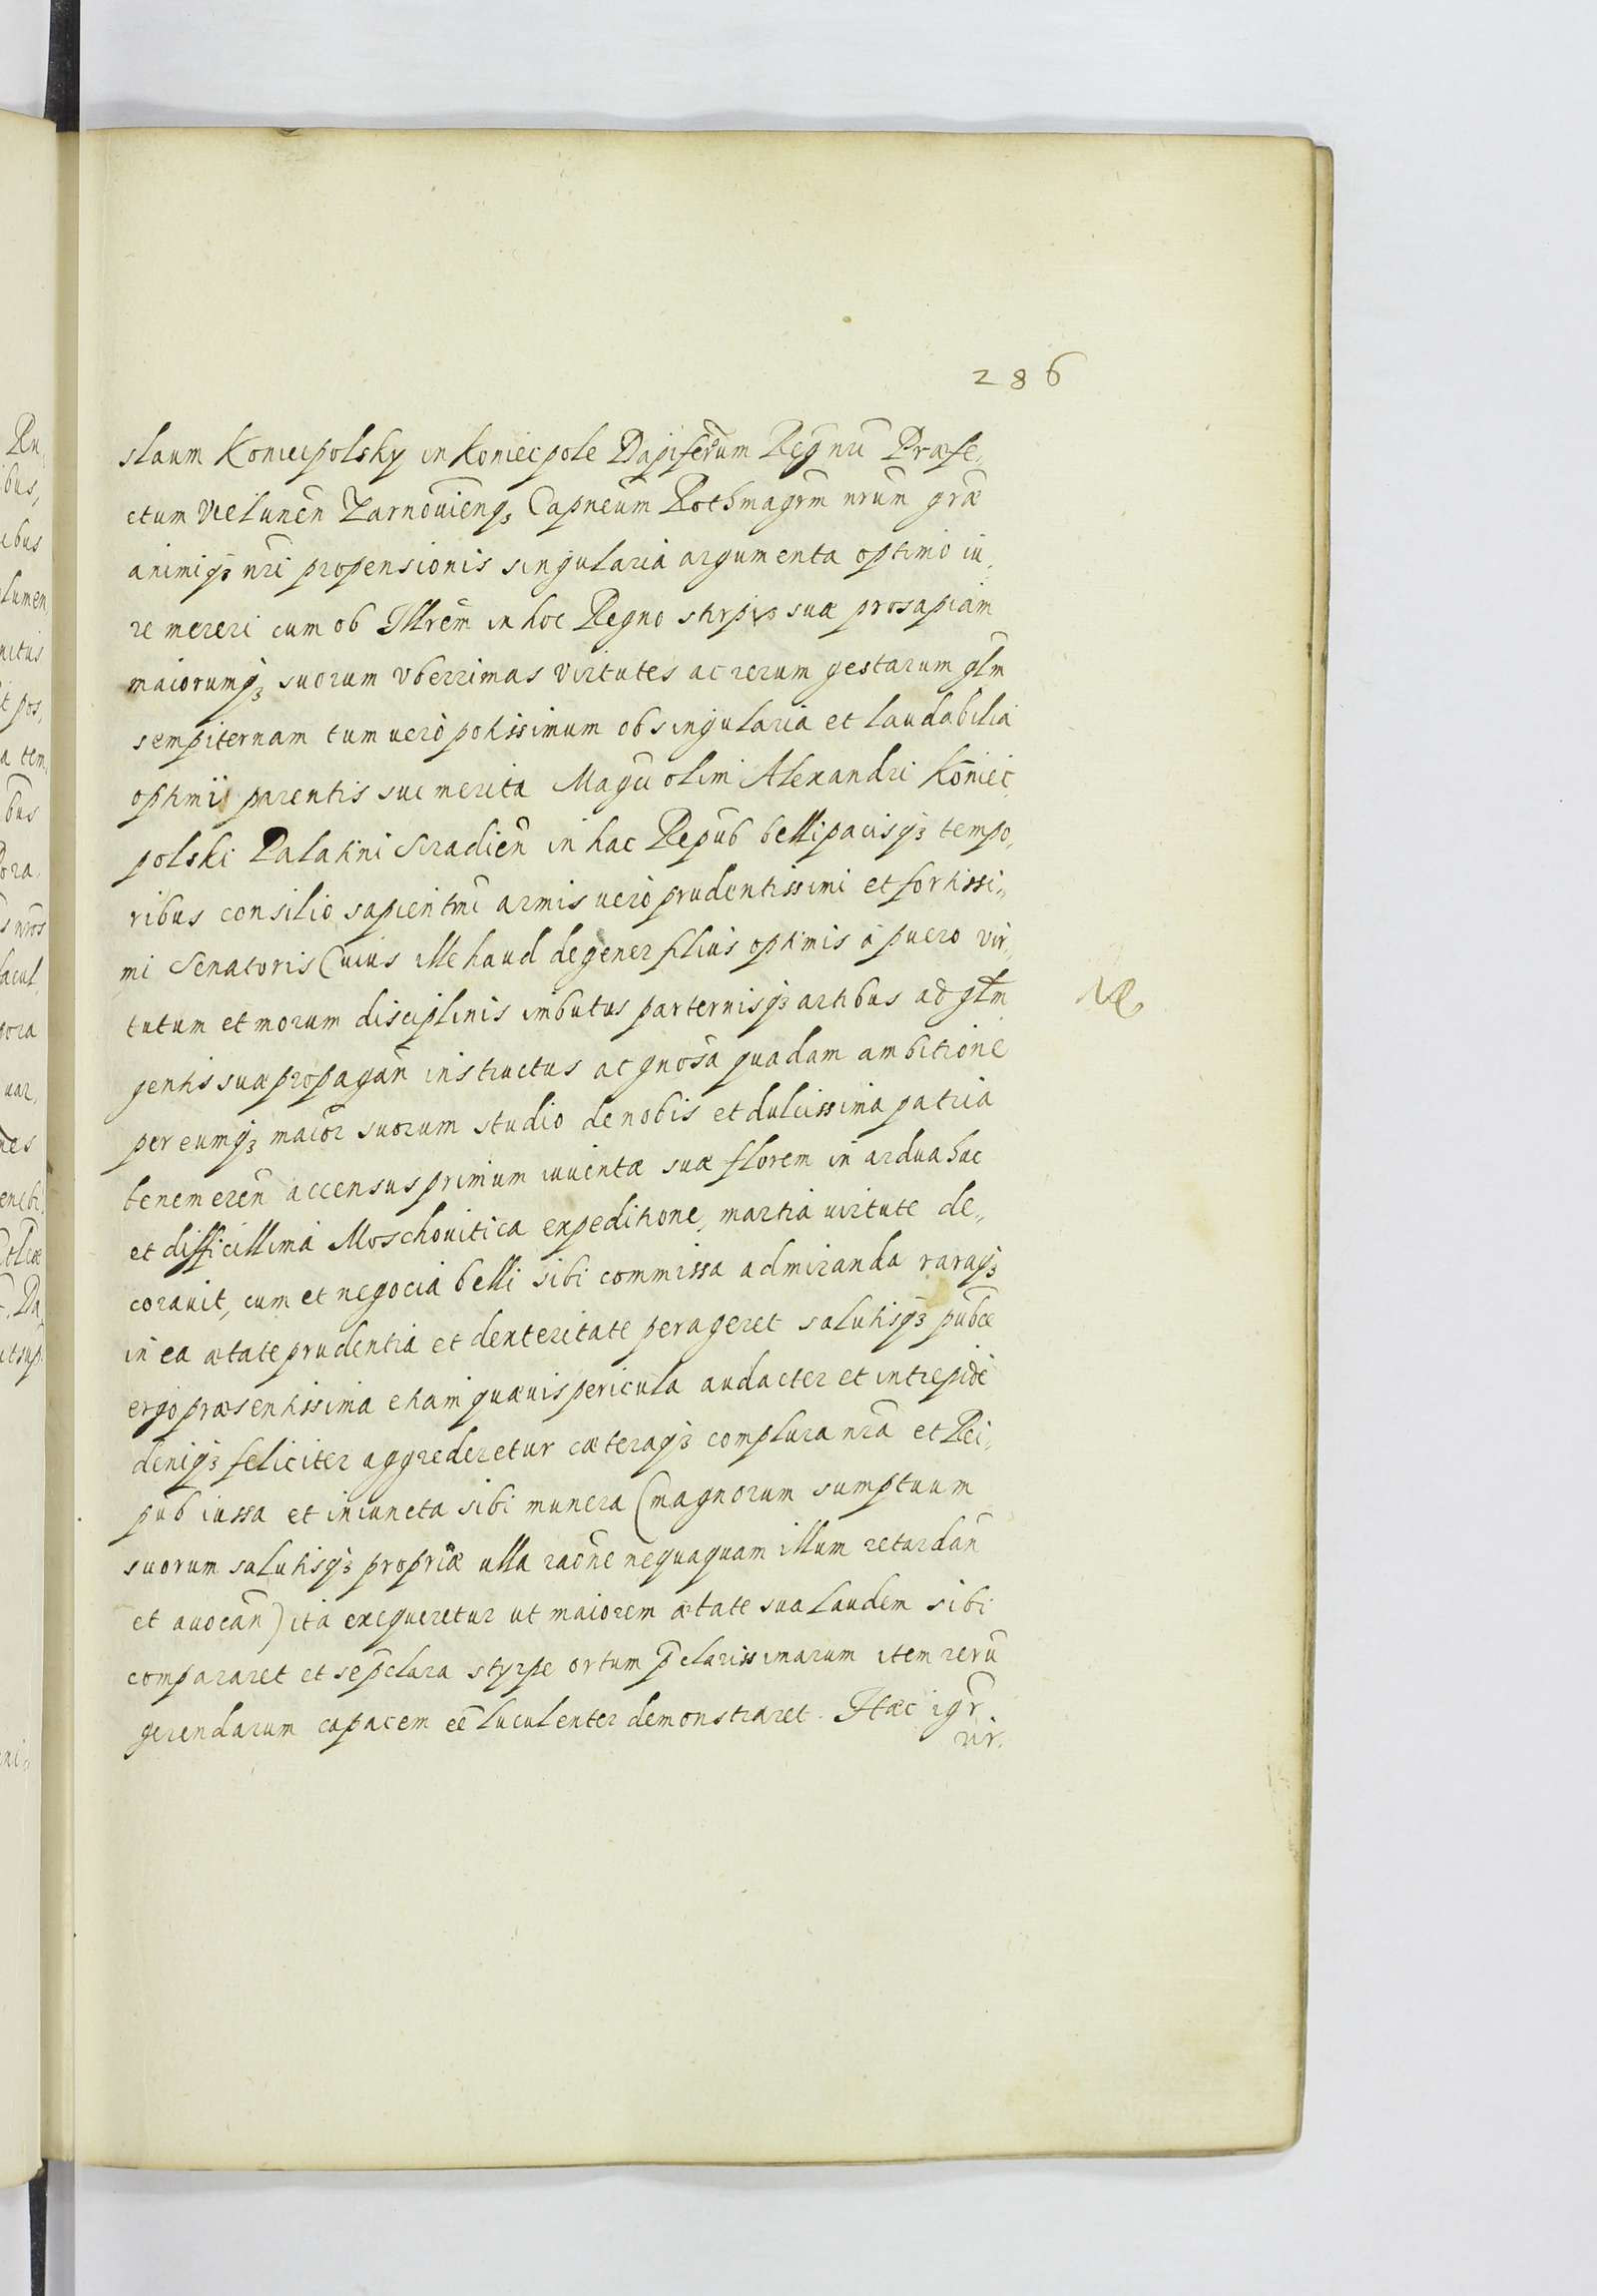 286
slaum Koniecpolsky in Koniecpole Dapiferum Regni nri Præfe„
ctum Vielunen̄ Zarnouienq₃ Capneum Rothmagr̄m nrum græ
animiq₃ nr̄i propensionis singularia argumenta optimo iu„
re mereri cum ob Illrem̄ in hoc Regno stirpis suæ prosapiam
maiorumq₃ suorum vberrimas virtutes ac rerum gestarum gl̄m
sempiternam tum uerò potissimum ob singularia et laudabilia
optimii parentis sui merita Magci olim Alexandri Koniec„
polski Palatini Siradien̄ in hac Repub̄ belli pacisq₃ tempo„
ribus consilio sapientmi armis uerò prudentissimi et fortissi„
mi Senatoris Cuius ille haud degener filius optimis à puero vir„
tutum et morum disciplinis imbutus parternisq₃ artibus ad gl̄m
gentis suæ propagan̄ instructus ac gnosa quadam ambitione
per eumq₃ maior̄ suorum studio de nobis et dulcissima patria
benemeren̄ accensus primum iuuentæ suæ florem in ardua hac
et difficillima Moschouitica expeditione, martia uirtute de„
corauit, cum et negocia belli sibi commissa admiranda raraq₃
in ea ætate prudentia et dexteritate perageret salutisq₃ pub̄cæ
ergo præsentissima etiam quæuis pericula audacter et intrepidè
deniq₃ feliciter aggrederetur cæteraq₃ complura nr̄a et Rei„
pub̄ iussa et iniuncta sibi munera (magnorum sumptuum
suorum salutisq₃ propriæ ulla raōne nequaquam illum retardan̄
et auocan̄) ita exequeretur ut maiorem ætate sua laudem sibi
compararet et se p̄clara styrpe ortum p̄clarissimarum item rerū
gerendarum capacem eē luculenter demonstraret. Hæc igr̄
uir.